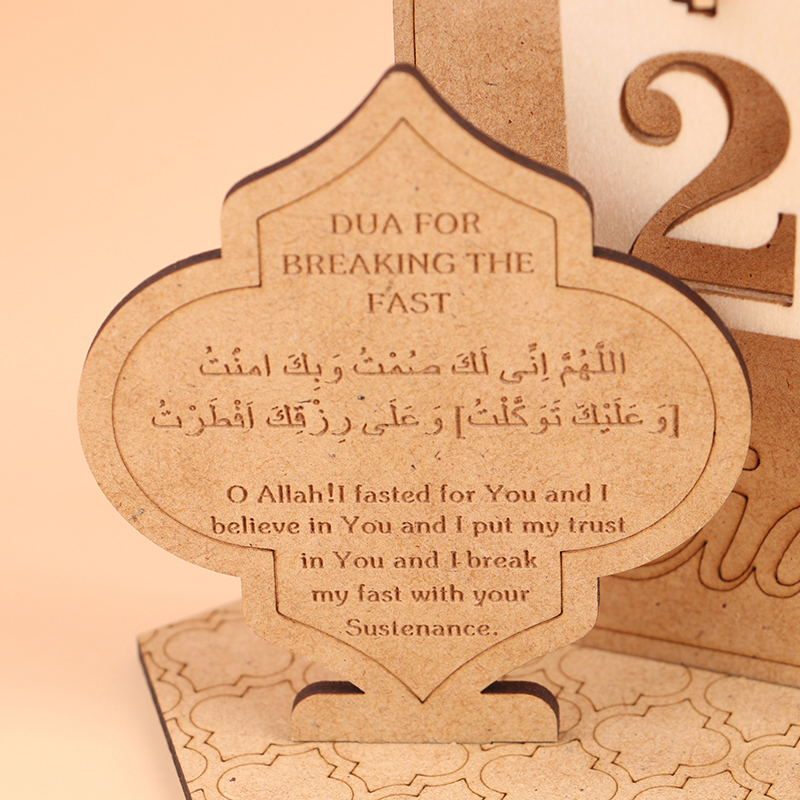 DUA FOR
BREAKING THE
FAST
اللَّهُمَّ اِنِّى لَكَ صُمْتُ وَبِكَ امنْتُ
[وَعَلَيْكَ تَوَكَّلْتُ] وَعَلَى رِزْقِكَ اَفْطَرْتُ
O Allah!I fasted for You and I
believe in You and I put my trust
in You and I break
my fast with your
Sustenance.
2